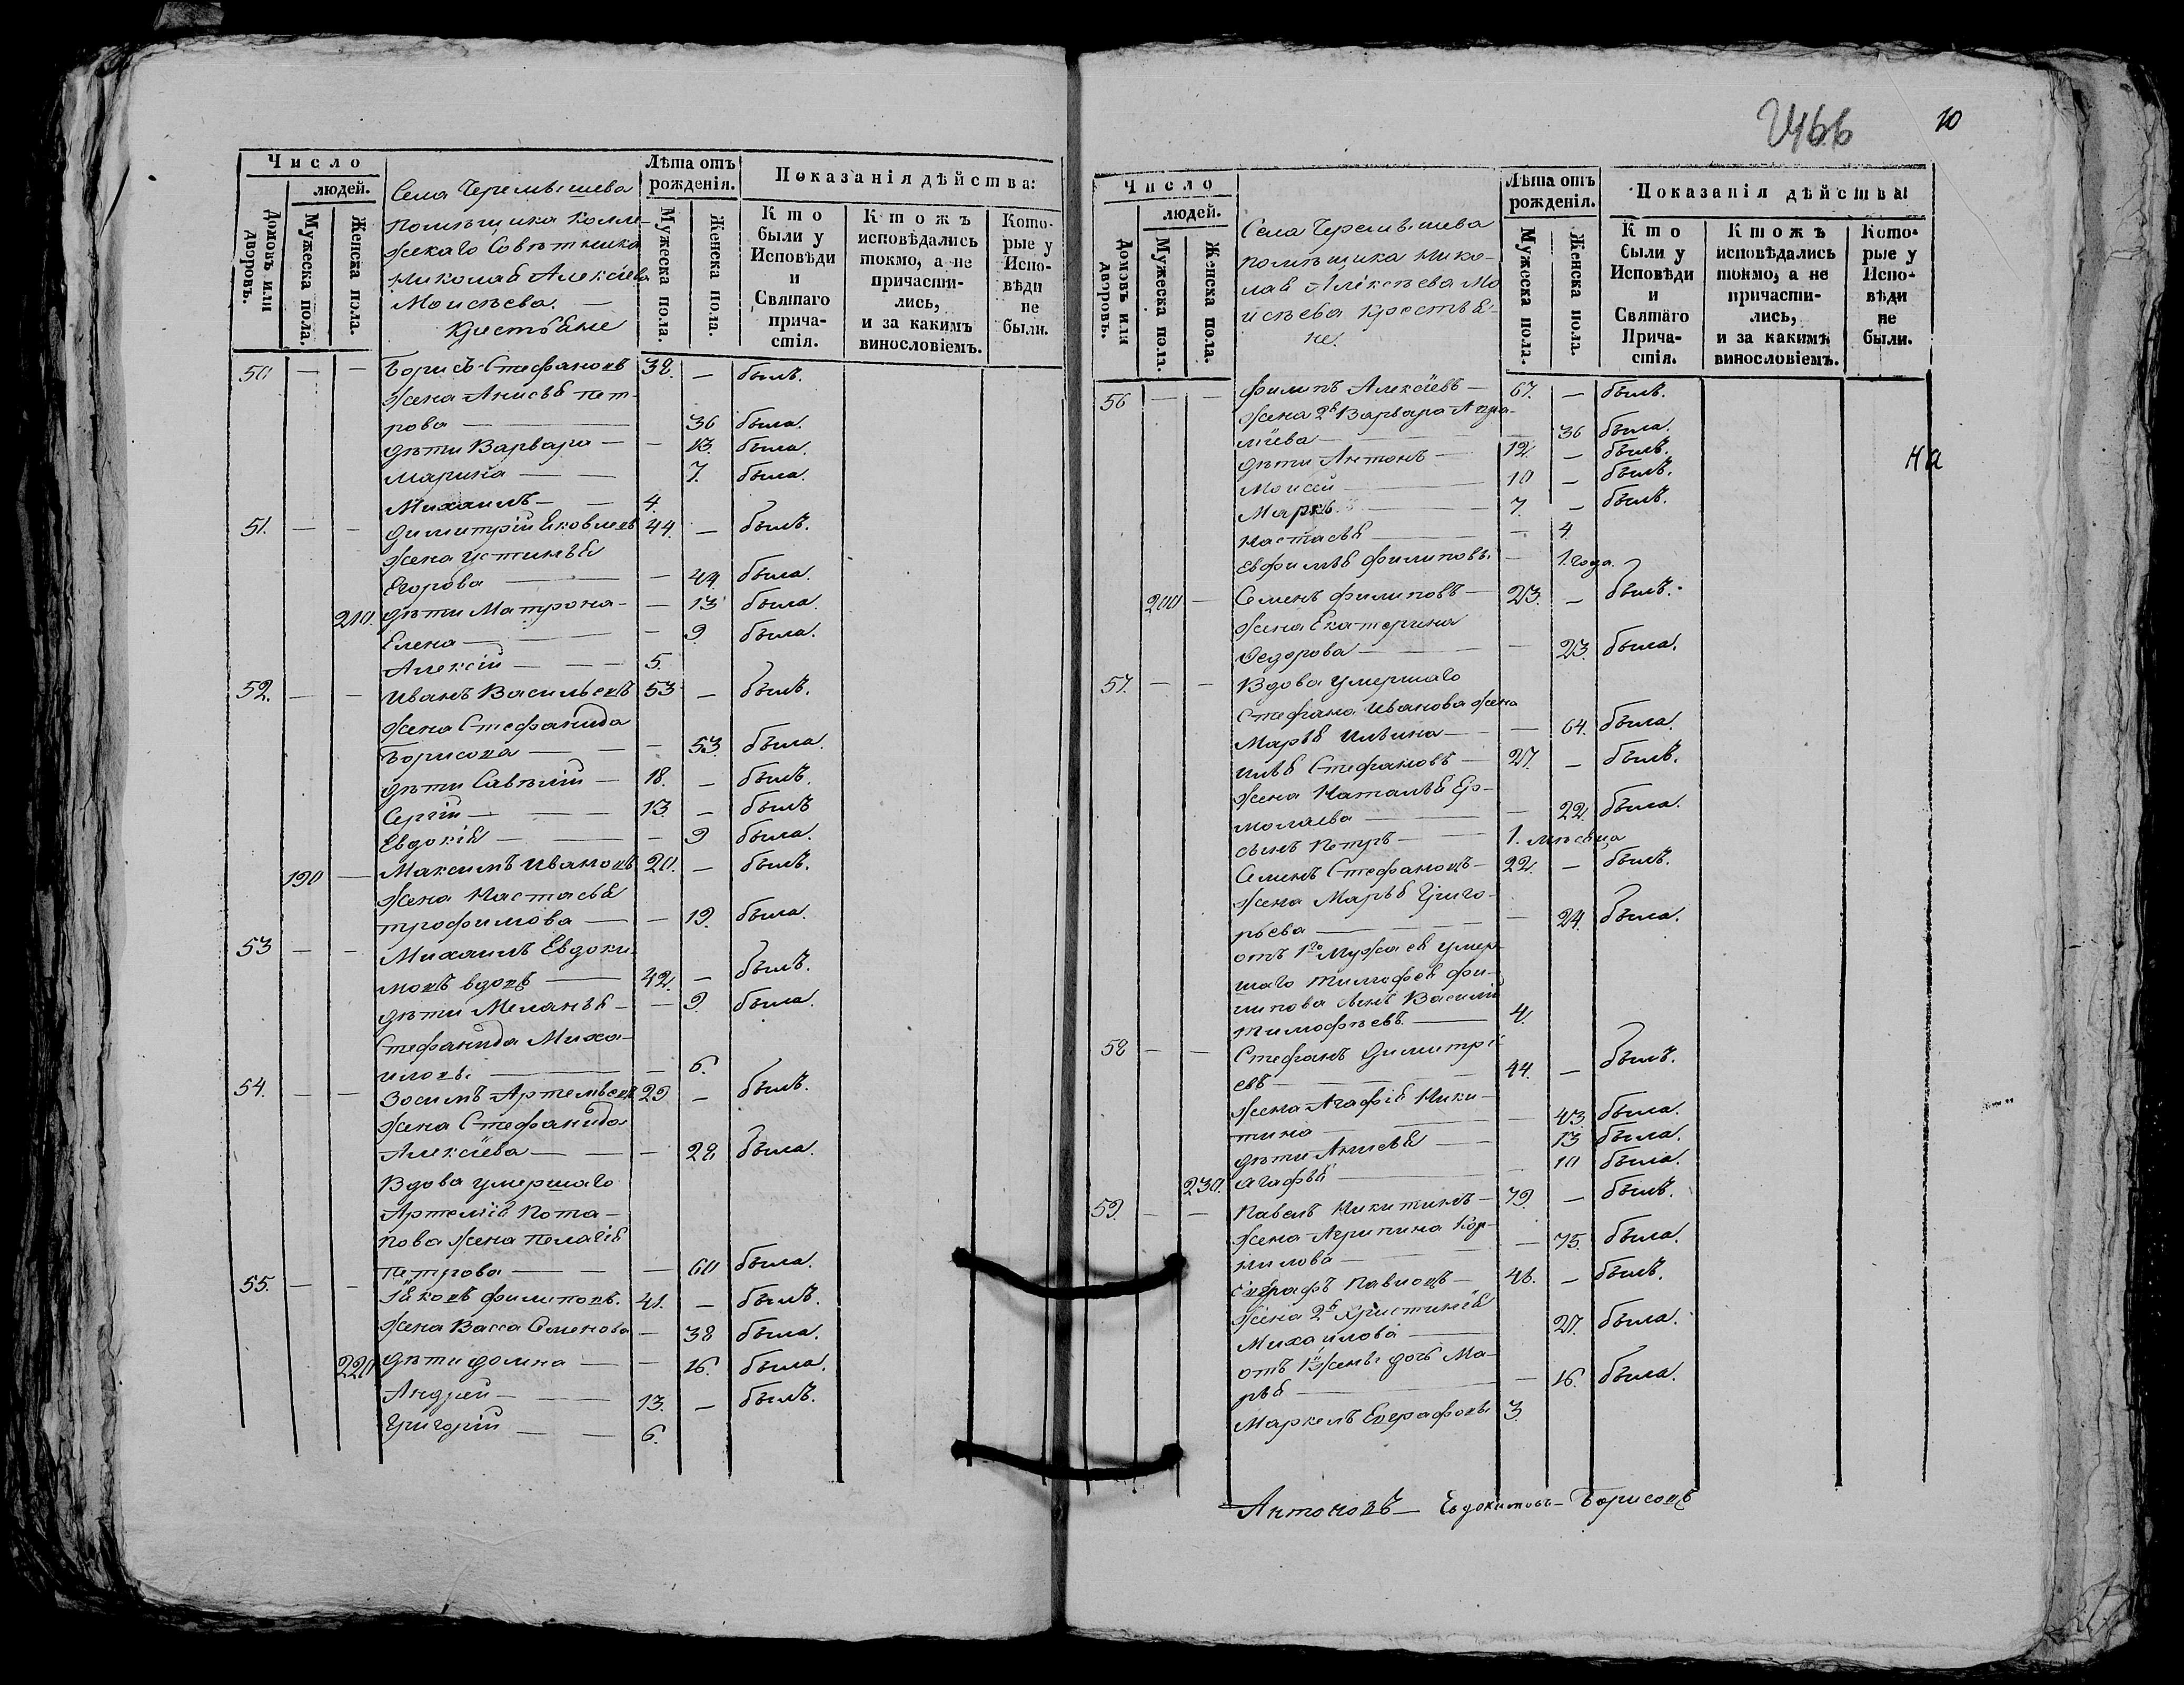 Число
людей.
Домовъ или дворовъ.
Мужеска пола.
Женска пола.
Села Черемышева
помѣщика Колле-
жскаго Совѣтника
Николая Алексѣева
Моисѣева. —
Крестьяне
Лѣта отъ рожденія.
Мужеска пола.
Женска пола.
Показанія дѣйства:
Кто были у Исповѣди и Святаго причастія.
Кто жъ исповѣдались токмо, а не причасти-лись, и за какимъ винословіемъ.
Кото-рые у Испо-вѣди не были.
50 — — Борисъ Стефановъ 38. — былъ.
жена Анисья Пет-
рова — 36 была.
дѣти Варвара — — 13. была.
Марина — — 7. была.
Михаилъ — — 4.
51. — — Димитрій Яковлевъ 44. — былъ.
жена Устинья
Егорова — — 44 была.
210. дѣти Матрона — — 13 была.
Елена — — 9. была.
Алексій — — 5.
52. — — Иванъ Васильевъ 53 — былъ.
жена Стефанида
Борисова — — 53. была.
дѣти Савѣлій — 18. — былъ.
Сергій — — 13. — былъ
Евдокія — — 9 была.
190 — Максимъ Ивановъ 20. — былъ.
жена Настасья
Трофимова — — 19. была.
53 — — Михаилъ Евдоки-
мовъ вдовъ — 42. — былъ.
дѣти Меланья — — 9. была.
Стефанида Миха-
иловы. — — 6.
54. — — Зосимъ Артемьевъ 29 — былъ.
жена Стефанида
Алексѣева — — 28 была.
Вдова умершаго
Артемія Пота-
пова жена Пелагія
Петрова — — 60 была.
55. — — Іяковъ Филиповъ. 41. — былъ.
жена Васса Семенова — 38 была.
220 дѣти Домна — — 16. была.
Андрей — — 13. — былъ.
Григорій — — 6.
2466
10
Число
людей.
Домовъ или дворовъ.
Мужеска пола.
Женска пола.
Села Черемышева
помѣщика Нико-
лая Алексѣева Мо
исѣева Крестья-
не.
Лѣта отъ рожденія.
Мужеска пола.
Женска пола.
Показанія дѣйства:
Кто были у Исповѣди и Святаго Прича-стія.
Кто жъ исповѣдались токмо, а не причасти-лись, и за какимъ винословіемъ.
Кото-рые у Испо-вѣди не были.
56 — — Филипъ Алексѣевъ — 67. — былъ.
жена 2я Варвара
— 36 была.
дѣти Антонъ — 12. — былъ.
Моисей — 10 — былъ.
Маркъ — 7. — былъ.
Настасья — — 4.
Евфимья Филиповы. — 1. года.
200 — Семенъ Филиповъ — 23. — былъ.
жена Екатерина
Ѳедорова — — 23. была.
57. — — Вдова умершаго
Стефана Иванова жена
Марья Ильина — — 64. была.
Илья Стефановъ — 27. — былъ.
жена Наталья Ер-
молаева — — 22. была.
сынъ Петръ — 1. мѣсяца
Семенъ Стефановъ — 22. — былъ.
жена Марья Григо-
рьева — — 24. была.
отъ 1го мужа ея умер-
шаго Тимофея Фи-
липова сынъ Василій
Тимофѣевъ. — 4.
58 — — Стефанъ Димитрі-
евъ — 44. — былъ.
жена Агафія Ники-
тина — — 43 была.
дѣти Анисья — 13 была.
230. Агафья — 10 была.
59. — — Павелъ Никитинъ — 79. — былъ.
жена Агрипина Кор-
нилова — — 75. была.
Евграфъ Павловъ — 46. — былъ.
жена 2я Христинія
Михайлова — 27. была.
отъ 1й жены дочь Ма-
рья — — 16. была.
Маркелъ Евграфовы 3.
на
Антоновъ — Евдокимовъ — Борисовъ